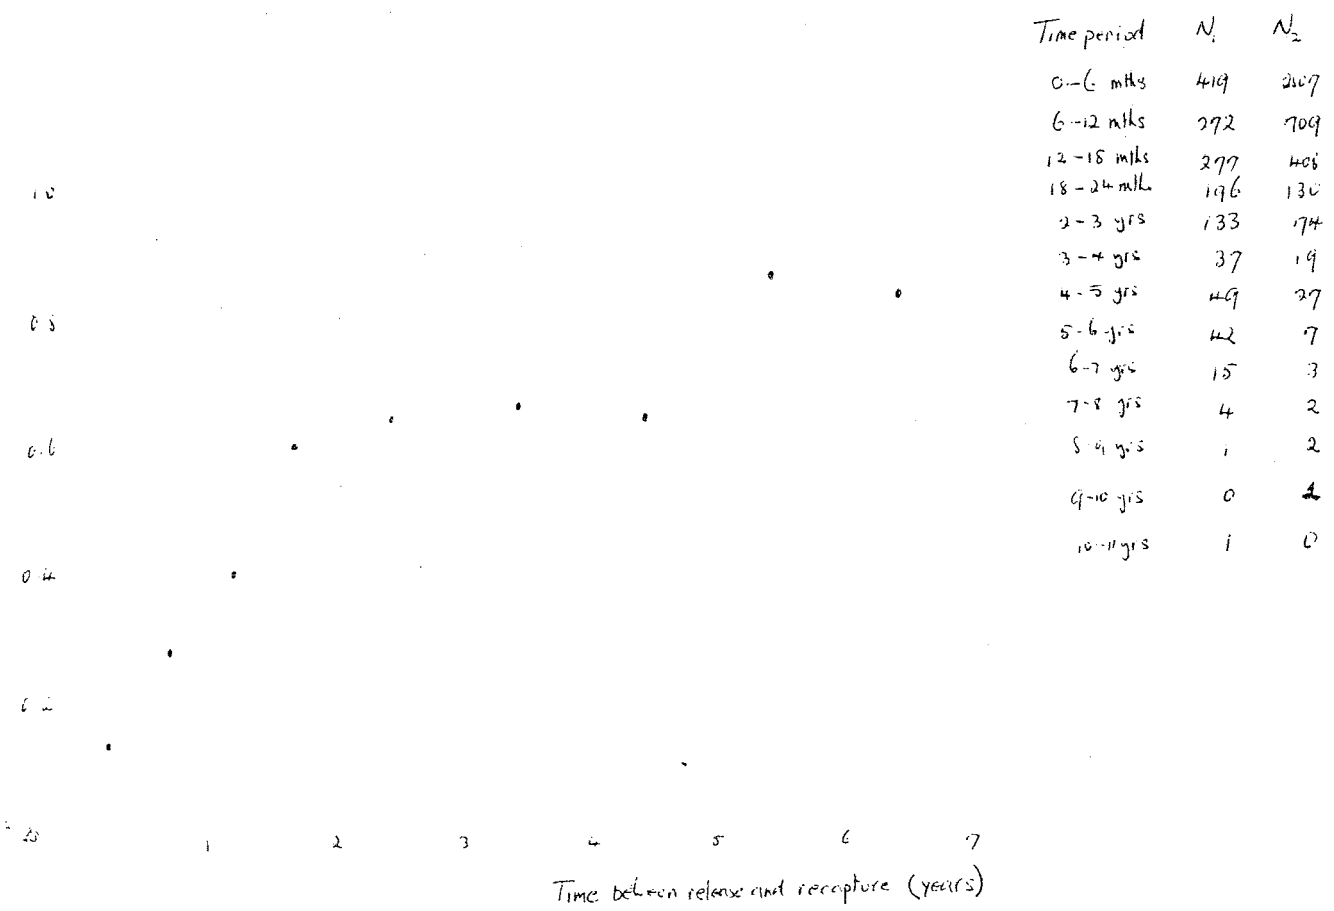 Time period N1 N2
0-6 mths 419
6-12 mths 272 709
12-18 mths 277 408
18-24 mths 196 130
2-3 yrs 133 74
3-4 yrs 37 19
4-5 yrs 49 27
5-6 yrs 42 7
6-7 yrs 15 3
7-8 yrs 4 2
8-9 yrs 1 2
9-10 yrs 0 1
10-11 yrs 1 0
1.0
0.8
0.6
0.4
0.2
1 2 3 4 5 6 7
Time between release and recapture (years)